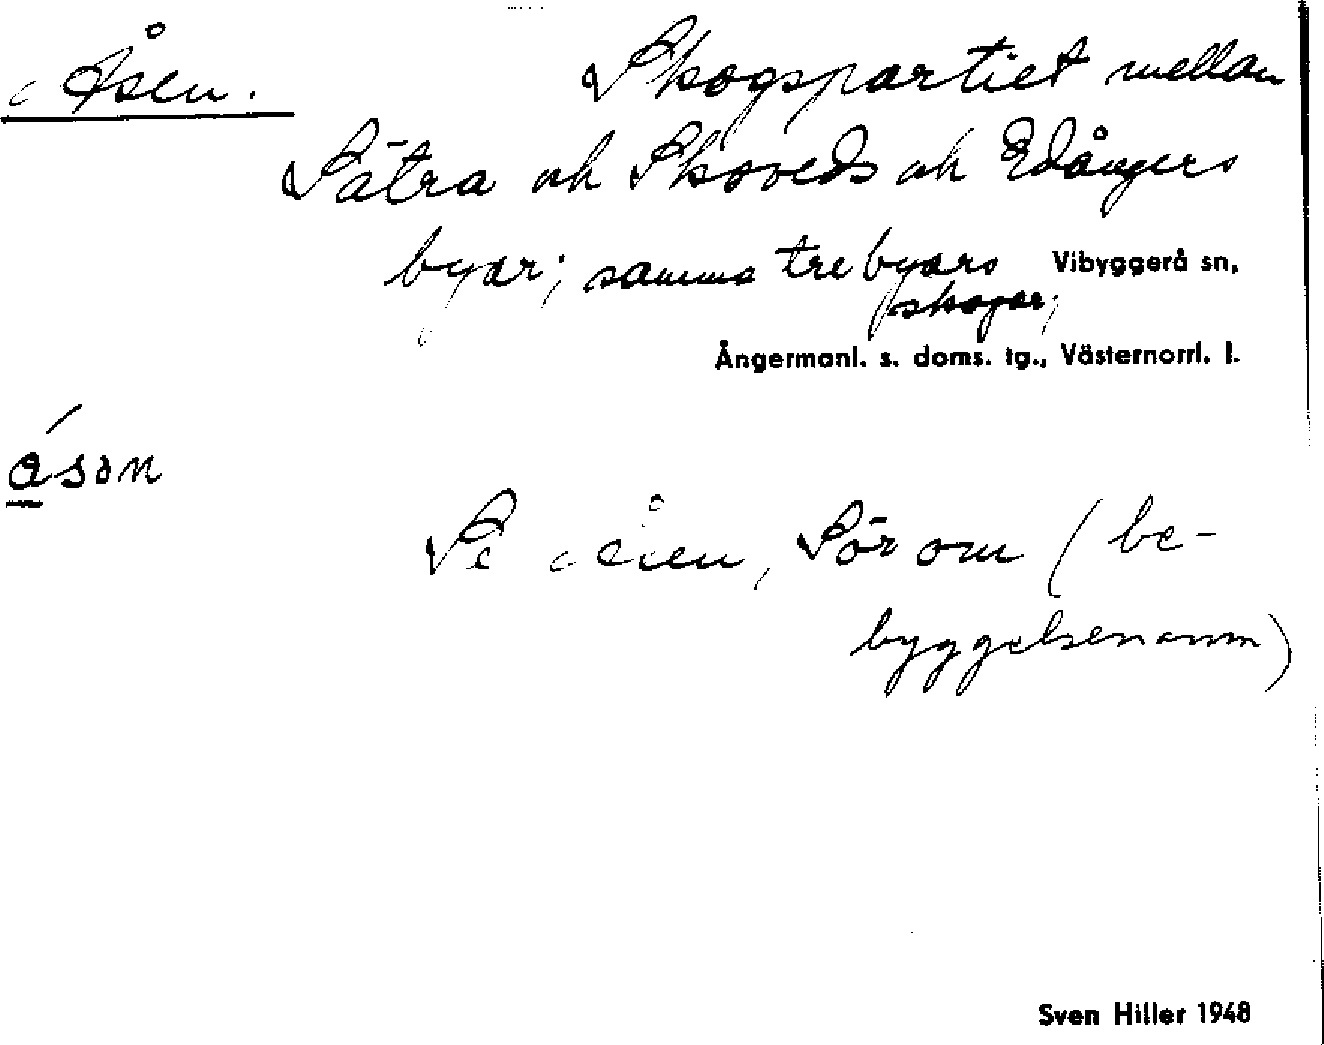 Åsen. Skogspartiet mellan
Sätra och Skoveds och Edångers
byar; samma tre byars Vibyggerå sn,
skogar;
Ångermanl. s. doms. tg., Västernorrl. l.
åsən
Se Åsen, Sör om (be-
byggelsenamn)
Sven Hiller 1948